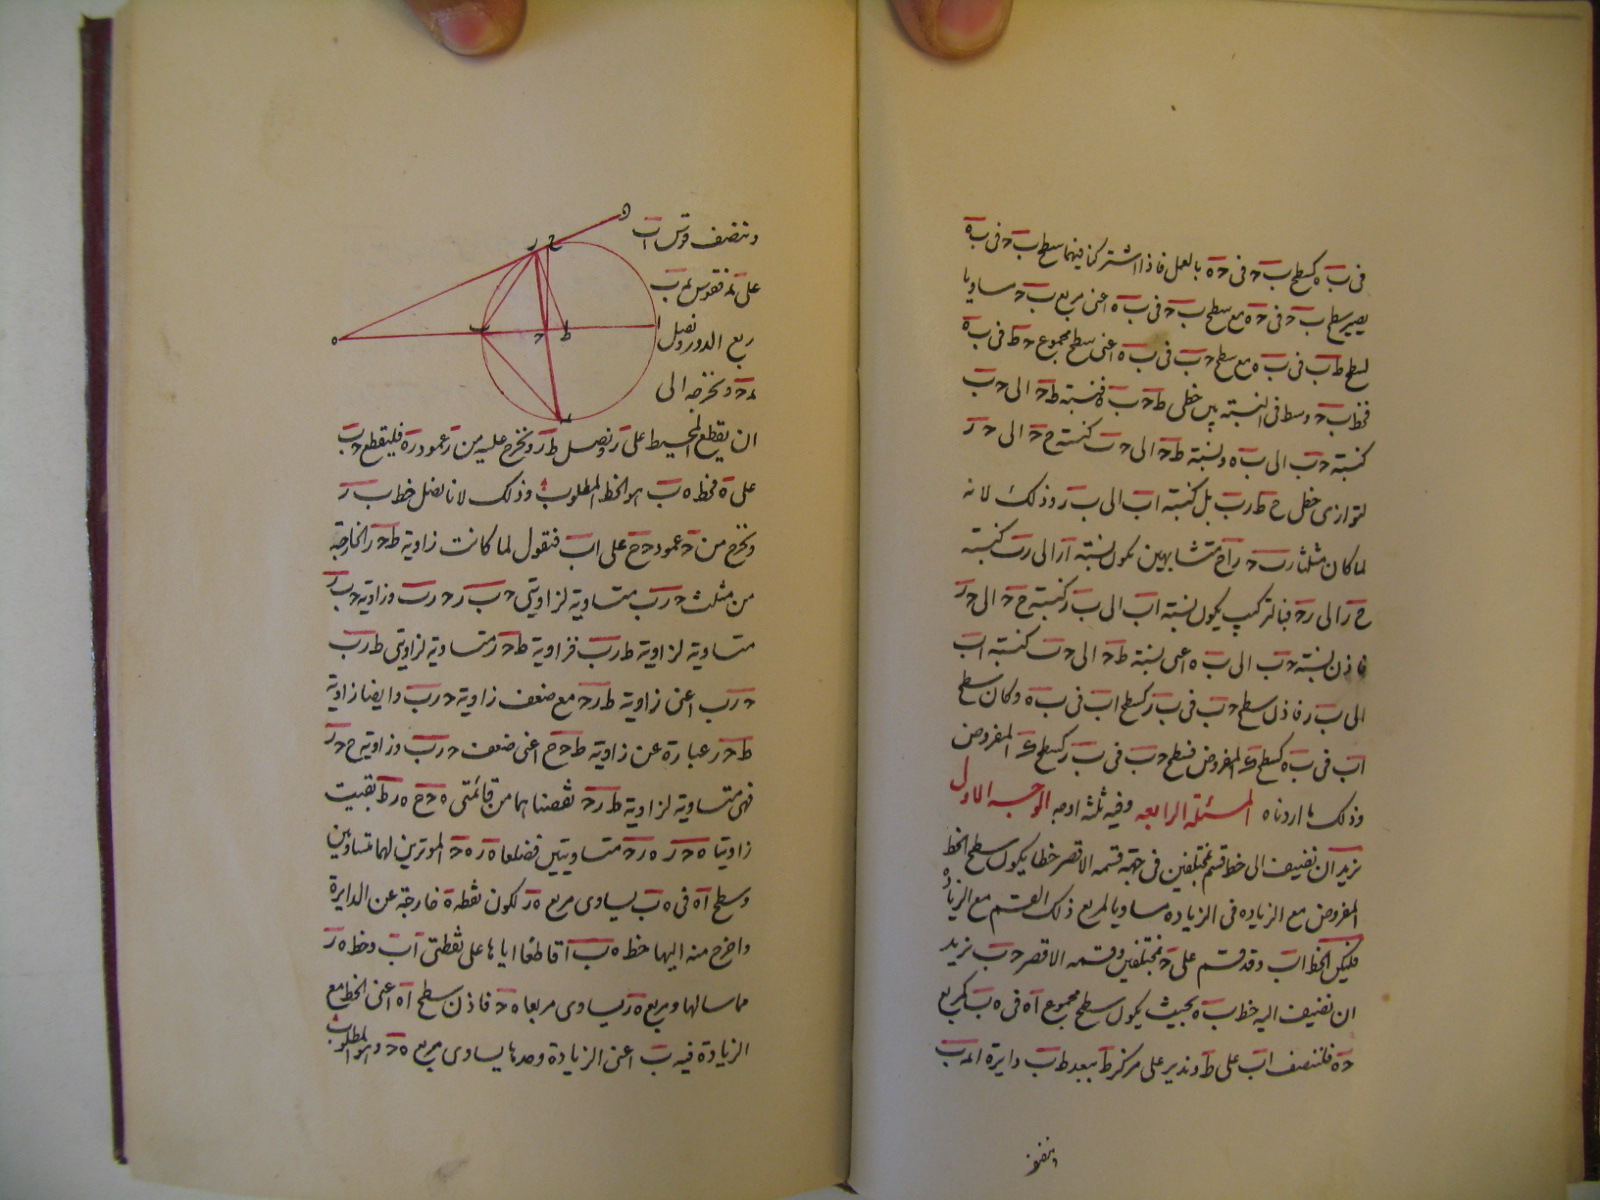 فی ب ه کسطح ب ح فی ح ه بالعمل فاذا اشترکنا فیهما سطح ب ح فی ب ه
یصیر سطح ب ح فی ح ه مع سطح ب ح فی ب ه اعنی مربع ب ح مساویا
لسطح ط ب فی ب ه مع سطح ح ب فی ب ه اعنی سطح مجموع ح ط فی ب ه
فخط ب ح وسط فی النسبته بین خطی ط ح ب ه فنسبته ط ح الی ح ب
کنسبته ح ب الی ب ه ونسبته ط ح الی ح ب کنسبته ح ح الی ح ر
لتوازی خطی ح ط ر ب بل کنسبته ا ب الی ب ر وذلک لانه
لما کان مثلثا ر ب ح ر ا ح متشابهین یکون نسبته ا ر الی ر ب کنسبته
ح ر الی ر ح فبالترکیب یکون نسبته ا ب الی ب ر کنسبته ح ح الی ح ر
فاذن نسبته ح ب الی ب ه اعنی نسبته ط ح الی ح ب کنسبته ا ب
الی ب ر فاذن سطح ح ب فی ب ر کسطح ا ب فی ب ه وکان سطح
ا ب فی ب ه کسطح ء المفروض فسطح ح ب فی ب ر کسطح ء المفروض
وذلک ما اردناه المسئلة الرابعه وفیه ثلثة اوجه الوجه الاول
نرید ان نضیف الی خط قسم بمختلفین فی جهته قسمه الاقصر خطا یکون سطح الخط
المفروض مع الزیاده فی الزیاده مساویا لمربع ذلک القسم مع الزیاده
فلیکن الخط ا ب وقد قسم علی ح بمختلفین وقسمه الاقصر ح ب نرید
ان نضیف الیه خط ب ه بحیث یکون سطح مجموع ا ه فی ه ب کمربع
ح ه فلننصف ا ب علی ط وندیر علی مرکز ط ببعد ط ب دایرة ا لـ ب
وننصف قوس ا ب
علی لـ فقوس لـ ب
ربع الدور ونصل
لـ ح ونخرجه الی
ان یقطع المحیط علی ر ونصل ط ر ونخرج علیه من ر عمود ر ه فلیقطع ح ب
علی ه فخط ه ب هو الخط المطلوب وذلک لانا نصل خط ب ر
ونخرج من ح عمود ح ح علی ا ب فنقول لما کانت زاویة ط ح ر الخارجة
من مثلث ح ر ب متساویة لزاویتی ح ب ر ح ر ب وزاویة ح ب ر
متساویة لزاویة ط ر ب فزاویة ط ح ر متساویة لزاویتی ط ر ب
ح ر ب اعنی زاویة ط ر ح مع ضعف زاویة ح ر ب وایضا زاویة
ط ح ر عبارة عن زاویة ط ح ح اعنی ضعف ح ر ب وزاویة ح ح ر
فهی متساویة لزاویة ط ر ح نقصناهما من قائمتی ه ح ح ه ر ط بقیت
زاویتا ه ح ر ه ر ح متساویتین فضلعا ه ر ه ح الموترین لهما متساویین
وسطح ا ه فی ه ب یساوی مربع ه ر لکون نقطة ه خارجة عن الدایرة
واخرج منه الیها خط ه ب ا قاطعا ایاها علی نقطتی ا ب وخط ه ر
مماسا لها ومربع ه ر یساوی مربعا ه ح فاذن سطح ا ه اعنی الخط مع
الزیادة فی ه ب اعنی الزیادة وحدها یساوی مربع ه ح وهو المطلوب